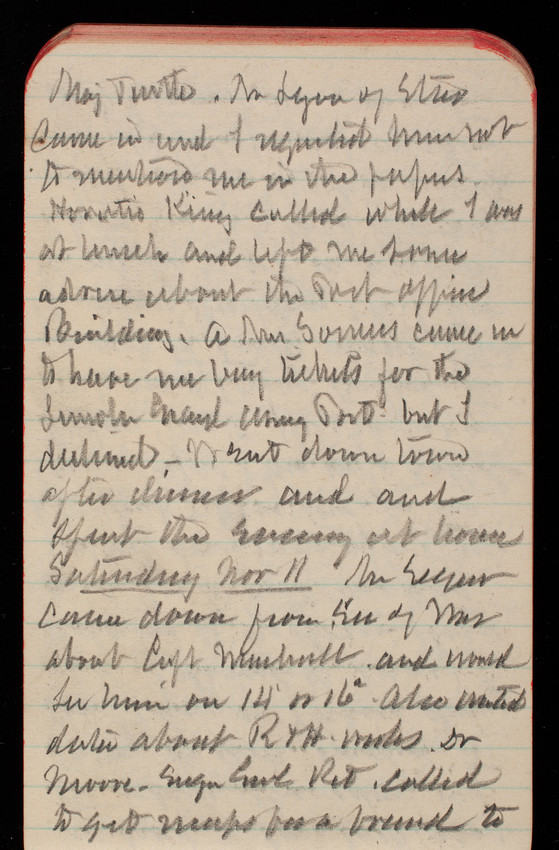 Maj Turtle. Mr Lyon of Star
came in and I requested him not
to mention me in the papers.
Horatio King called while I was
at lunch and left me some
advice about the Post Office
Building. A Mr Somers came in
to have me buy tickets for the
Lincoln Grand Army Post but I
declined. Went down town
after dinner and and
spent the evening at home
Saturday Nov 11 Mr
came down from Sec of War
about Capt Marshall and would
see him on 14 or 16th. Also wanted
data about R & H works. Dr
Moore - Ret. called
to get maps for a friend to